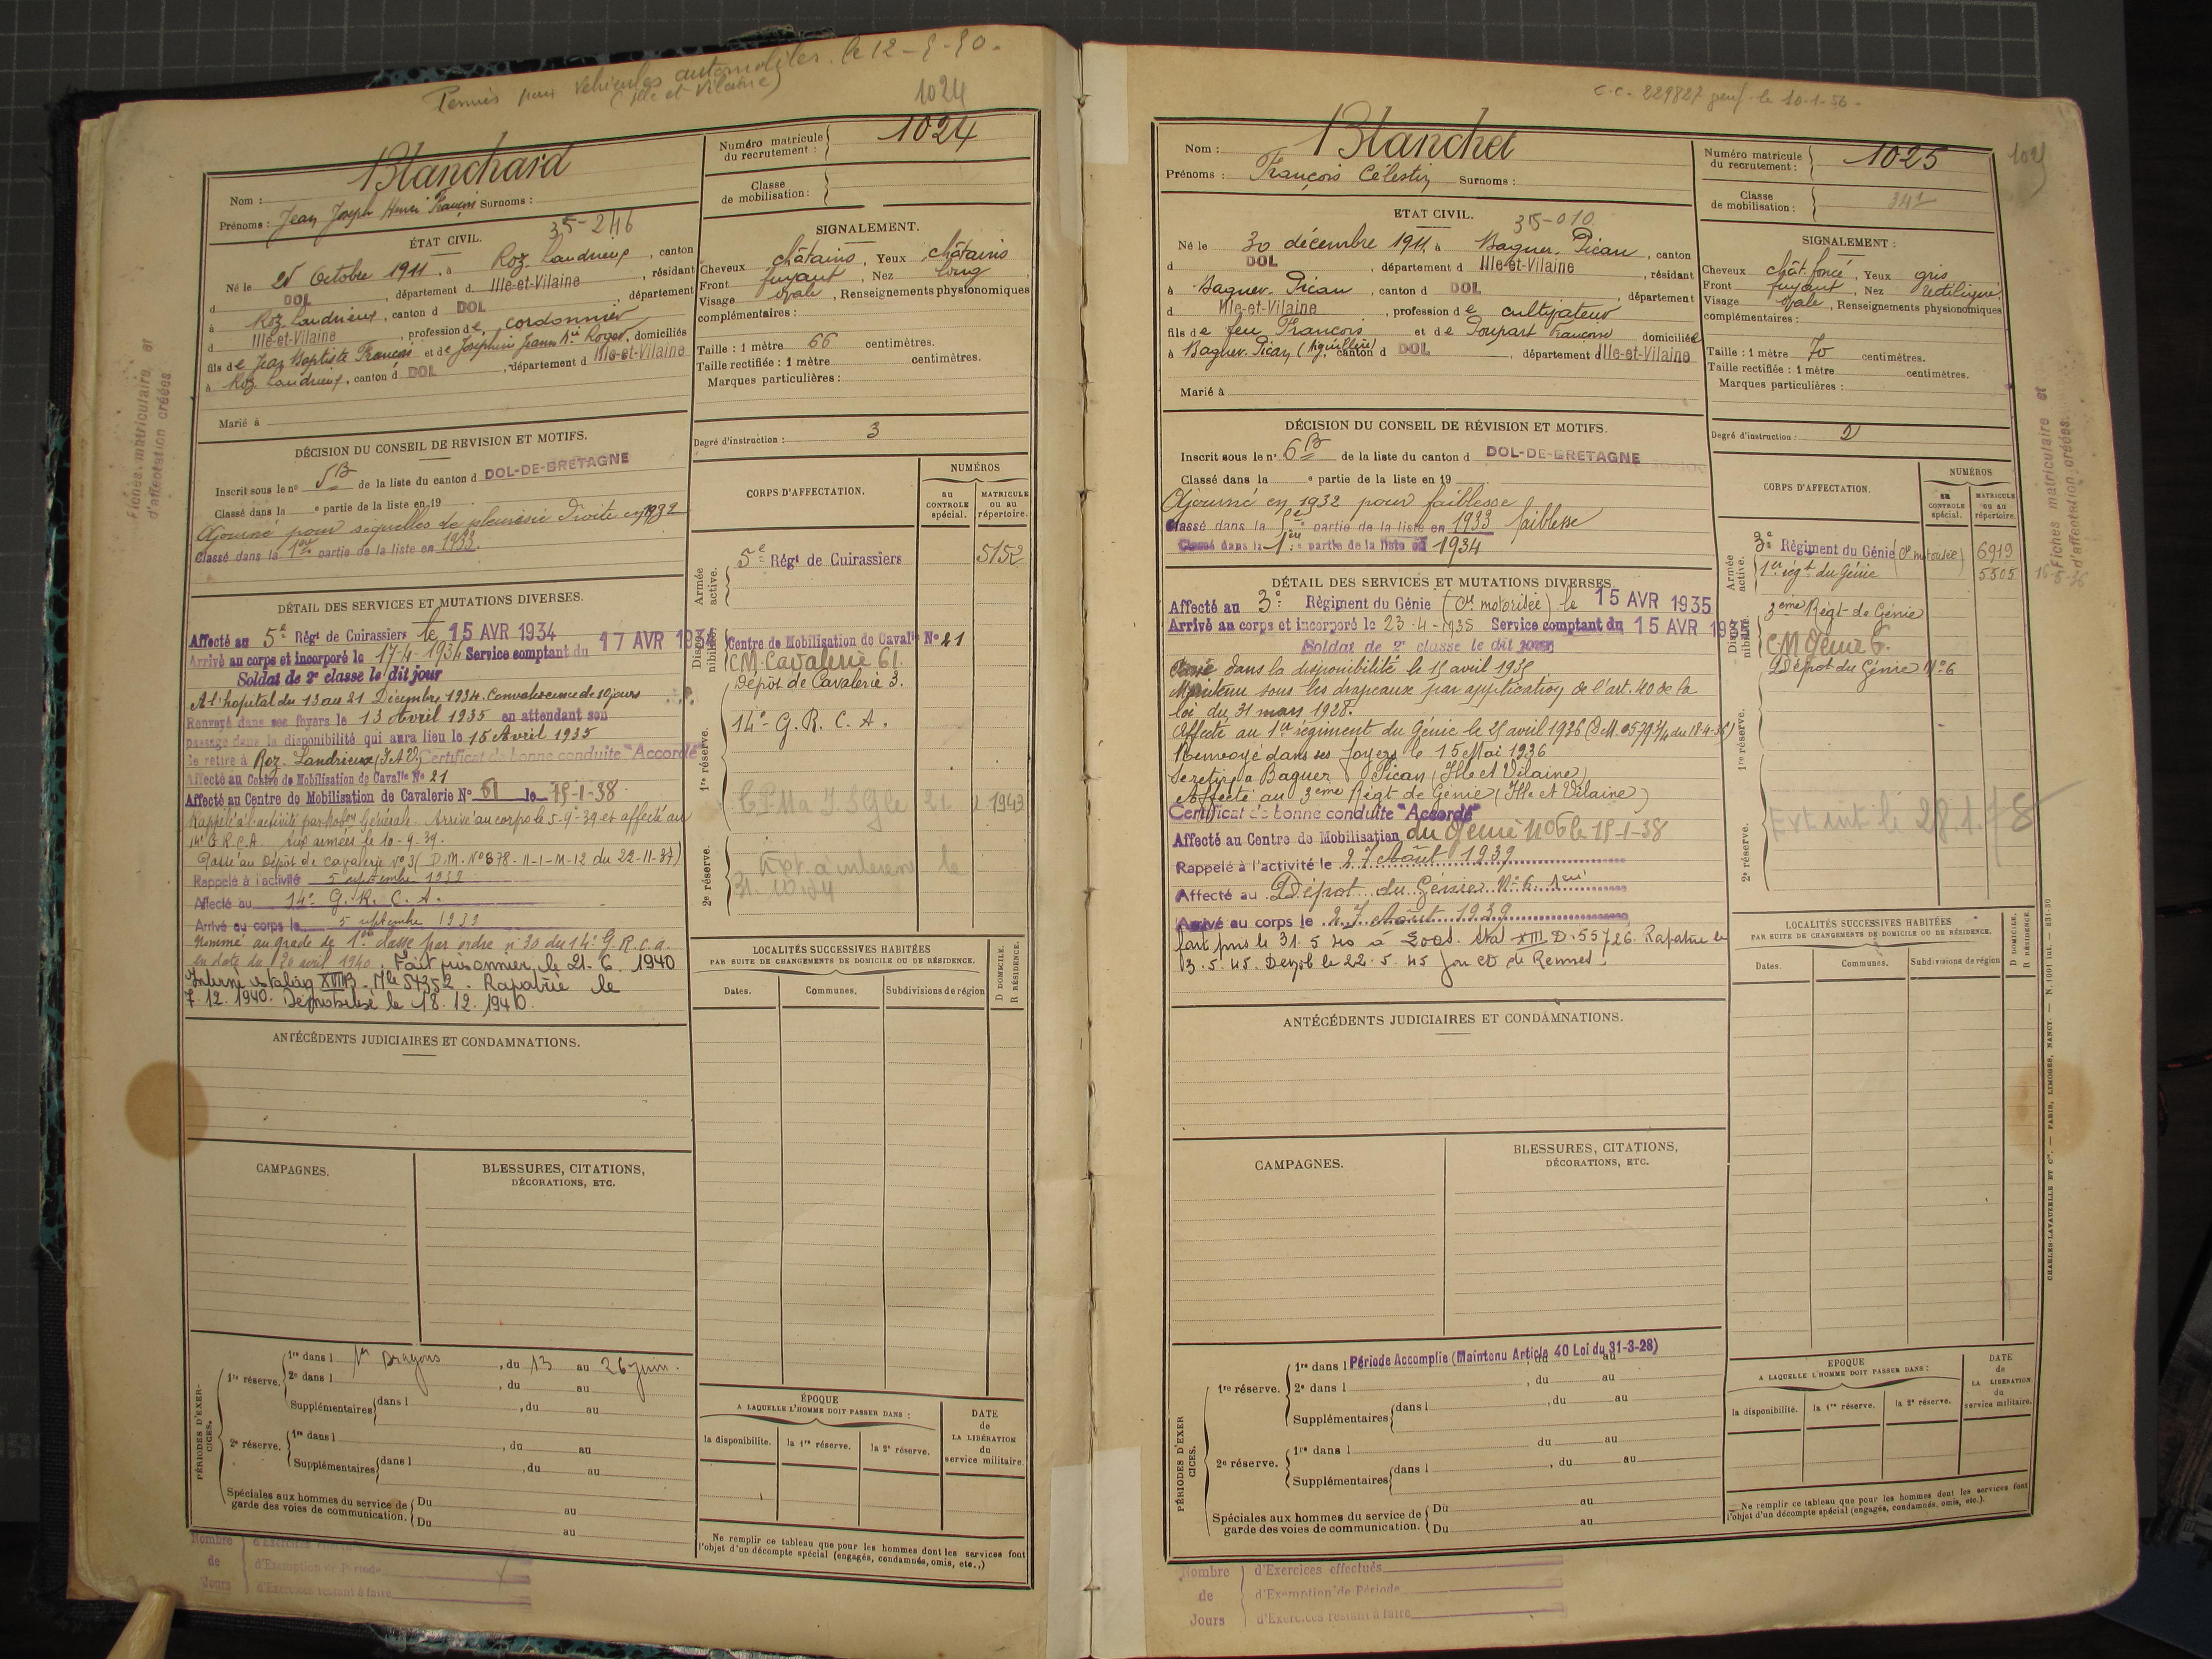 Permis pour véhicules automobiles. le 12-5-50.
(Ille et Vilaine)
1024
Nom : Blanchard
Prénoms : Jean Joseph Henri François Surnoms :
Numéro matricule du recrutement : 1024
Classe de mobilisation :
ÉTAT CIVIL.
35-246
Né le 25 Octobre 1911, à Roz Landrieux, canton
d DOL, département d Ille-et-Vilaine, résidant
à Roz Landrieux, canton d DOL, département
d Ille-et-Vilaine, profession de cordonnier
fils de Jean Baptiste François et de Joséphine Jeanne Mie Roger, domiciliés
à Roz Landrieux, canton d DOL, département d Ille-et-Vilaine
Marié à
SIGNALEMENT.
Cheveux châtains, Yeux châtains
Front fuyant, Nez long
Visage ovale, Renseignements physionomiques
complémentaires :
Taille : 1 mètre 66 centimètres.
Taille rectifiée : 1 mètre centimètres.
Marques particulières :
Degré d'instruction : 3
DÉCISION DU CONSEIL DE REVISION ET MOTIFS.
Inscrit sous le n° 5B de la liste du canton d DOL-DE-BRETAGNE
Classé dans la e partie de la liste en 19
Ajourné pour séquelles de pleurésie droite en 1932
Classé dans la 1ère partie de la liste en 1933.
DÉTAIL DES SERVICES ET MUTATIONS DIVERSES.
Affecté au 5e Régt de Cuirassiers le 15 AVR 1934
Arrivé au corps et incorporé le 17-4-1934 Service comptant du 17 AVR 1934
Soldat de 2e classe le dit jour
A l'hôpital du 13 au 21 Décembre 1934. Convalescence de 10 jours
Renvoyé dans ses foyers le 13 Avril 1935 en attendant son
passage dans la disponibilité qui aura lieu le 15 Avril 1935
Se retire à Roz Landrieux (I et V) Certificat de bonne conduite "Accordé"
Affecté au Centre de Mobilisation de Cavalie N° 21
Affecté au Centre de Mobilisation de Cavalerie N° 61 le 15-1-38
Rappelé à l'activité par Mobon Générale. Arrivé au corps le 5-9-39 et affecté au
14e G.R.C.A. aux armées le 10-9-39.
Passé au Dépôt de cavalerie N° 3 (D.M. N° 378-11-1-M-12 du 22-11-37)
Rappelé à l'activité 5 septembre 1939
Affecté au 14e G.R.C.A.
Arrivé au corps le 5 septembre 1939
Nommé au grade de 1ère classe par ordre n° 30 du 14e G.R.C.A.
en date du 20 avril 1940. Fait prisonnier le 21.6.1940
Interné stalag XVIIB. Mle 54352. Rapatrié le
7.12.1940. Démobilisé le 18.12.1940.
CORPS D'AFFECTATION.
NUMÉROS
au CONTROLE spécial.
MATRICULE ou au répertoire.
Armée active.
5e Régt de Cuirassiers 5152
Disponibilité.
Centre de Mobilisation de Cavalie N° 21
CM Cavalerie 61.
Dépôt de Cavalerie 3.
1re réserve.
14e G.R.C.A.
2e réserve.
LOCALITÉS SUCCESSIVES HABITÉES
PAR SUITE DE CHANGEMENTS DE DOMICILE OU DE RÉSIDENCE.
Dates. Communes. Subdivisions de région
D DOMICILE. R RÉSIDENCE.
ANTÉCÉDENTS JUDICIAIRES ET CONDAMNATIONS.
CAMPAGNES.
BLESSURES, CITATIONS,
DÉCORATIONS, ETC.
PÉRIODES D'EXERCICES.
1re réserve. 1re dans l 1er Dragons, du 13 au 26 juin.
2e dans l , du au
Supplémentaires dans l , du au
2e réserve. 1re dans l , du au
Supplémentaires dans l , du au
Spéciales aux hommes du service de garde des voies de communication. Du au
Du au
ÉPOQUE
A LAQUELLE L'HOMME DOIT PASSER DANS :
la disponibilité. la 1re réserve. la 2e réserve.
DATE de LA LIBÉRATION du service militaire.
Ne remplir ce tableau que pour les hommes dont les services font
l'objet d'un décompte spécial (engagés, condamnés, omis, etc.,)
Nombre de Jours
d'Exemption de Période
d'Exercices restant à faire
Fiches matriculaire et
d'affectation créées
C.C. 229827 le 10-1-56.
Nom : Blanchet
Prénoms : François Célestin Surnoms :
Numéro matricule du recrutement : 1025
1025
Classe de mobilisation :
ETAT CIVIL.
35-010
Né le 30 décembre 1911, à Baguer-Pican, canton
d DOL, département d Ille-et-Vilaine, résidant
à Baguer-Pican, canton d DOL, département
d Ille-et-Vilaine, profession de cultivateur
fils de feu François et de Poupart Françoise domiciliée
à Baguer-Pican, canton d DOL, département d Ille-et-Vilaine
Marié à
SIGNALEMENT :
Cheveux chât. foncé, Yeux gris
Front fuyant, Nez rectiligne
Visage ovale, Renseignements physionomiques
complémentaires :
Taille : 1 mètre 70 centimètres.
Taille rectifiée : 1 mètre centimètres.
Marques particulières :
Degré d'instruction : 2
DÉCISION DU CONSEIL DE RÉVISION ET MOTIFS.
Inscrit sous le n° 6B de la liste du canton d DOL-DE-BRETAGNE
Classé dans la e partie de la liste en 19
Ajourné en 1932 pour faiblesse
Classé dans la partie de la liste en 1933 faiblesse
Classé dans la 1ère partie de la liste en 1934
DÉTAIL DES SERVICES ET MUTATIONS DIVERSES.
Affecté au 3e Régiment du Génie (Cie motorisée) le 15 AVR 1935
Arrivé au corps et incorporé le 23-4-1935 Service comptant du 15 AVR 1935
Soldat de 2e classe le dit jour
Classé dans la disponibilité le 15 avril 1936
Maintenu sous les drapeaux par application de l'art. 40 de la
loi du 31 mars 1928.
Affecté au 1er régiment du Génie le 25 avril 1936
Renvoyé dans ses foyers le 15 Mai 1936
Se retire à Baguer Pican (Ille et Vilaine)
Affecté au 3ème Régt de Génie (Ille et Vilaine)
Certificat de bonne conduite "Accordé"
Affecté au Centre de Mobilisation du Génie N° 6 le 15-1-38
Rappelé à l'activité le 27 Août 1939
Affecté au Dépôt du Génie N° 6
Arrivé au corps le 27 Août 1939
fait pris le 31.5.40 à stal XIII D. 55726. Rapatrié le
3.5.45. Demob le 22.5.45 par CD de Rennes.
CORPS D'AFFECTATION.
NUMÉROS
au CONTROLE spécial.
MATRICULE ou au répertoire.
Armée active.
3e Régiment du Génie (Cie motorisée) 6919
1er régt du Génie 5505
Disponibilité.
3ème Régt de Génie
CM Génie 6.
Dépôt du Génie N° 6
1re réserve.
2e réserve.
LOCALITÉS SUCCESSIVES HABITÉES
PAR SUITE DE CHANGEMENTS DE DOMICILE OU DE RÉSIDENCE.
Dates. Communes. Subdivisions de région
D DOMICILE. R RÉSIDENCE.
ANTÉCÉDENTS JUDICIAIRES ET CONDAMNATIONS.
CAMPAGNES.
BLESSURES, CITATIONS,
DÉCORATIONS, ETC.
PÉRIODES D'EXERCICES.
1re réserve. 1re dans l Période Accomplie (Maintenu Article 40 Loi du 31-3-28) du au
2e dans l , du au
Supplémentaires dans l , du au
2e réserve. 1re dans l du au
Supplémentaires dans l , du au
Spéciales aux hommes du service de garde des voies de communication. Du au
Du au
EPOQUE
A LAQUELLE L'HOMME DOIT PASSER DANS :
la disponibilité. la 1re réserve. la 2e réserve.
DATE de LA LIBERATION du service militaire.
Ne remplir ce tableau que pour les hommes dont les services font
l'objet d'un décompte spécial (engagés, condamnés, omis, etc.).
Nombre de Jours
d'Exercices effectués
d'Exemption de Période
d'Exercices restant à faire
Fiches matriculaire et
d'affectation créées.
16-5-36
CHARLES-LAVAUZELLE ET Cie. — PARIS, LIMOGES, NANCY.